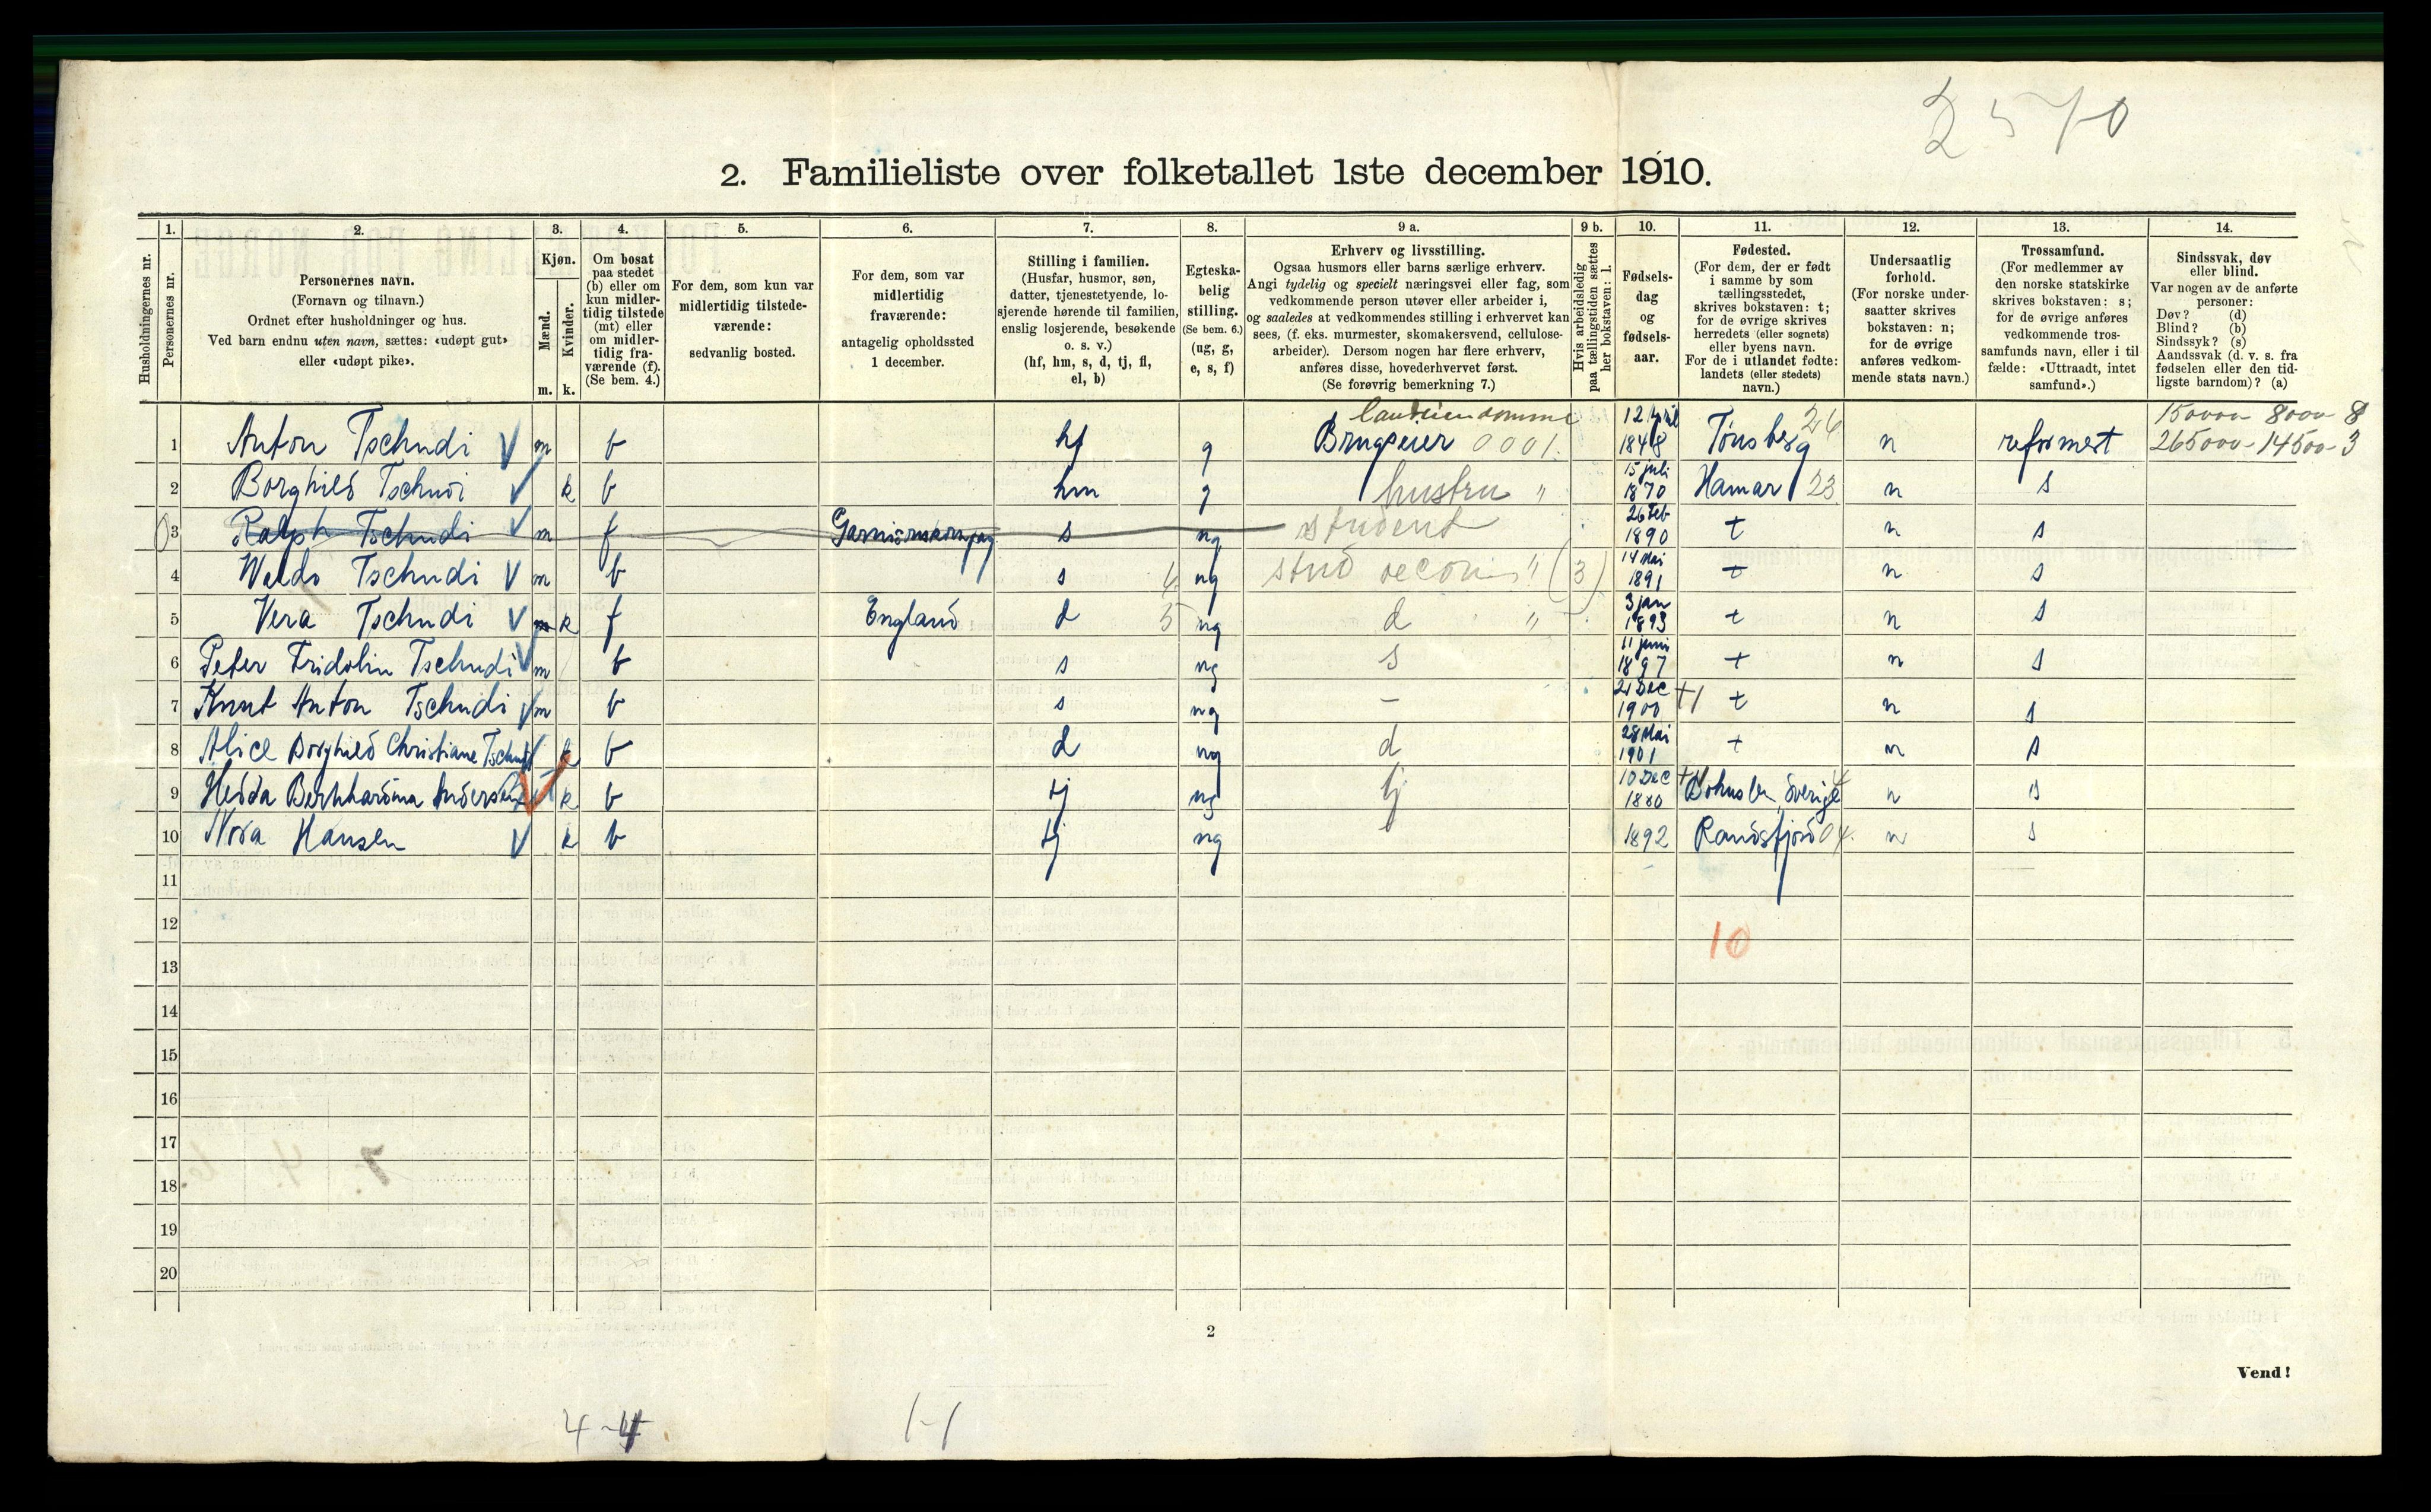 2570
2. Familieliste over folketallet 1ste december 1910.
Husholdningernes nr.
1.
Personernes nr.
2.
Personernes navn.
(Fornavn og tilnavn.)
Ordnet efter husholdninger og hus.
Ved barn endnu uten navn, sættes: «udøpt gut»
eller «udøpt pike».
3.
Kjøn.
Mænd.
Kvinder.
m.
k.
4.
Om bosat
paa stedet
(b) eller om
kun midler-
tidig tilstede
(mt) eller
om midler-
tidig fra-
værende (f).
(Se bem. 4.)
5.
For dem, som kun var
midlertidig tilstede-
værende:
sedvanlig bosted.
6.
For dem, som var
midlertidig
fraværende:
antagelig opholdssted
1 december.
7.
Stilling i familien.
(Husfar, husmor, søn,
datter, tjenestetyende, lo-
sjerende hørende til familien,
enslig losjerende, besøkende
o. s. v.)
(hf, hm, s, d, tj, fl,
el, b)
8.
Egteska-
belig
stilling.
(Se bem. 6.)
(ug, g,
e, s, f)
9 a.
Erhverv og livsstilling.
Ogsaa husmors eller barns særlige erhverv.
Angi tydelig og specielt næringsvei eller fag, som
vedkommende person utøver eller arbeider i,
og saaledes at vedkommendes stilling i erhvervet kan
sees, (f. eks. murmester, skomakersvend, cellulose-
arbeider). Dersom nogen har flere erhverv,
anføres disse, hovederhvervet først.
(Se forøvrig bemerkning 7.)
9 b.
Hvis arbeidsledig
paa tællingstiden sættes
her bokstaven: l.
10.
Fødsels-
dag
og
fødsels-
aar.
11.
Fødested.
(For dem, der er født
i samme by som
tællingsstedet,
skrives bokstaven: t;
for de øvrige skrives
herredets (eller sognets)
eller byens navn.
For de i utlandet fødte:
landets (eller stedets)
navn.)
12.
Undersaatlig
forhold.
(For norske under-
saatter skrives
bokstaven: n;
for de øvrige
anføres vedkom-
mende stats navn.)
13.
Trossamfund.
(For medlemmer av
den norske statskirke
skrives bokstaven: s;
for de øvrige anføres
vedkommende tros-
samfunds navn, eller i til-
fælde: «Uttraadt, intet
samfund».)
14.
Sindssvak, døv
eller blind.
Var nogen av de anførte
personer:
Døv? (d)
Blind? (b)
Sindssyk? (s)
Aandssvak (d. v. s. fra
fødselen eller den tid-
ligste barndom)? (a)
1 Anton Tschudi m b hf g Brugseier 0001. 12 April 1848 Tønsberg 26 n reformert 265000-14500-3
2 Borghild Tschudi k b hm g hustru " 15 juli 1870 Hamar 23 n s
3 Ralph Tschudi m f s ug student 26 Feb 1890 t n s
4 Waldo Tschudi m b s 4 ug stud oecon " (3) 14 Mai 1891 t n s
5 Vera Tschudi m k f England d 5 ug d " 3 jan 1893 t n s
6 Peter Fridolin Tschudi m b s ug s 11 juni 1897 t n s
7 Knut Anton Tschudi m b s ug – 21 Dec 1900 t n s
8 Alice Borghild Christiane Tschudi k b d ug d 28 Mai 1901 t n s
9 Hedda Bernhardina Andersen k b tj ug tj 10 Dec 1880 Sverige n s
10 Nora Hansen k b tj ug 1892 Randsfjord 04. n s
11
12
10
13
14
15
16
17
18
19
20
2
Vend!
4-4
1-1